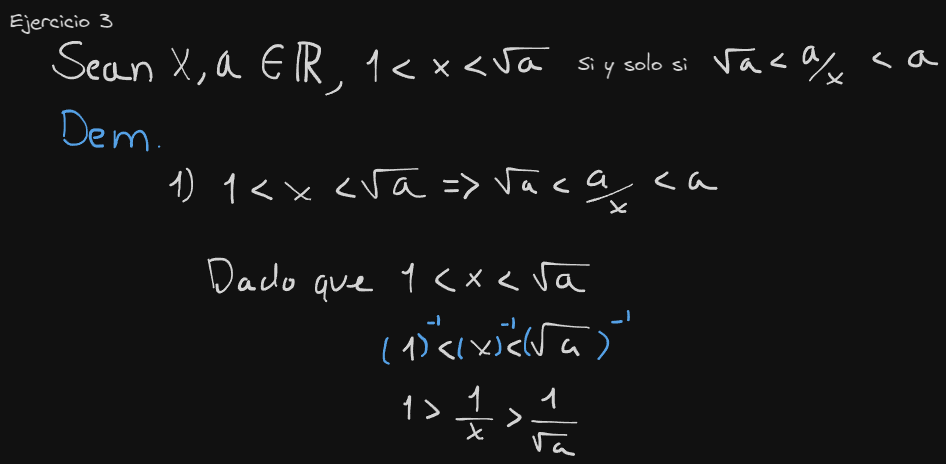 Ejercicio 3
Sean x, a ∈ ℝ, 1 < x < √a si y solo si √a < a/x < a
Dem.
1) 1 < x < √a => √a < a/x < a
Dado que 1 < x < √a
(1)⁻¹ < (x)⁻¹ < (√a)⁻¹
1 > 1/x > 1/√a